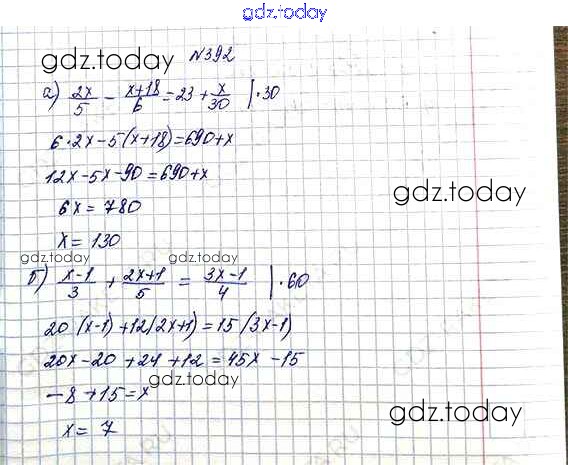 gdz.today
gdz.today №392
а) 2x/5 - x+18/6 = 23 + x/30 | · 30
6·2x-5(x+18)=690+x
12x-5x-90=690+x
gdz.today
6x=780
x=130
gdz.today gdz.today
б) x-1/3 + 2x+1/5 = 3x-1/4 | · 60
20(x-1)+12(2x+1)=15(3x-1)
20x-20+24+12=45x-15
gdz.today
-8+15=x
gdz.today
x=7